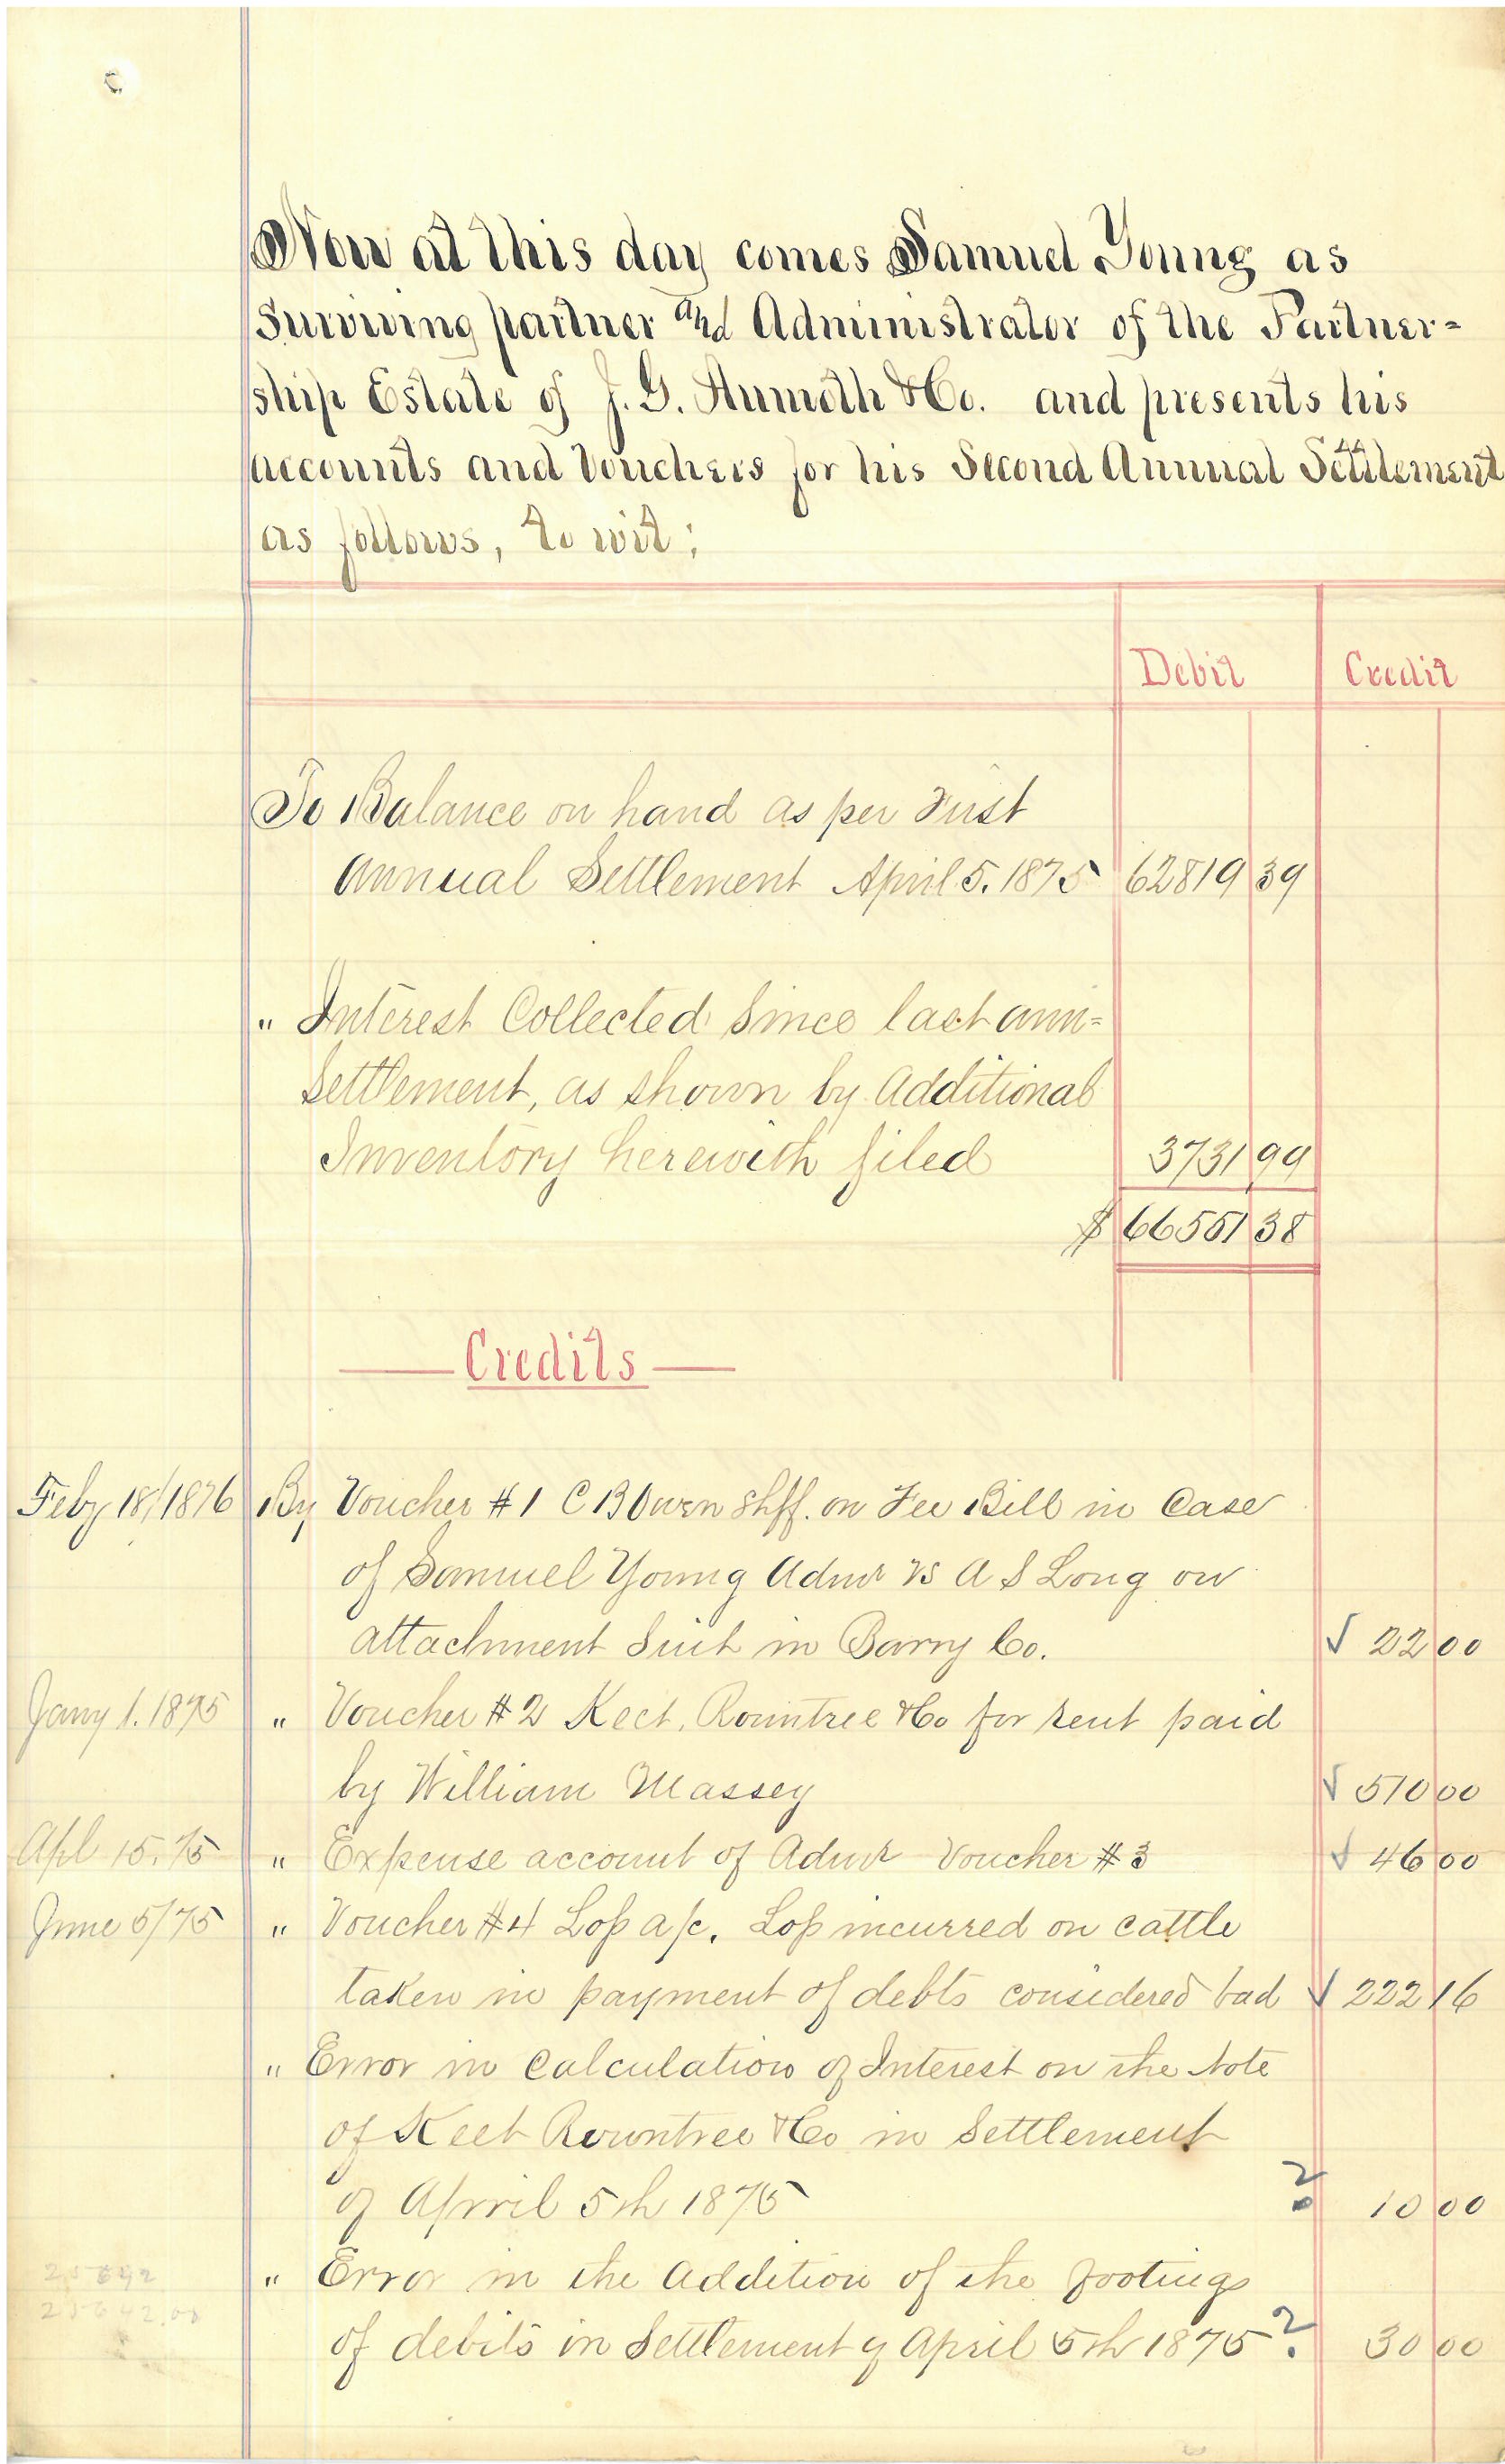 Now at this day comes Samuel Young as
Surviving partner and Administrator of the Partner-
ship Estate of J. G. & Co. and presents his
accounts and Vouchers for his Second Annual Settlement
as follows, to wit;
Debit Credit
To Balance on hand as per First
Annual Settlement April 5. 1875 62819 39
" Interest Collected Since last ann-
Settlement, as shown by Additional
Inventory herewith filed 3731 99
$ 66551 38
Credits
Feby 18/1876 By Voucher #1 C B Owen Shff. on Fee Bill in Case
of Samuel Young Admr vs A S Long on
attachment Suit in Barry Co. √ 22 00
Jany 1. 1875 " Voucher #2 Keet, Rountree & Co for rent paid
by William Massey √ 510 00
Apl 15. 75 " Expense account of Admr Voucher #3 √ 46 00
June 5/75 " Voucher #4 Loss a/c. Loss incurred on cattle
taken in payment of debts considered bad √ 222 16
" Error in Calculation of Interest on the Note
of Keet Rountree & Co in Settlement
of April 5th 1875 ? 10 00
" Error in the Addition of the footings
of debits in Settlement of April 5th 1875 ? 30 00